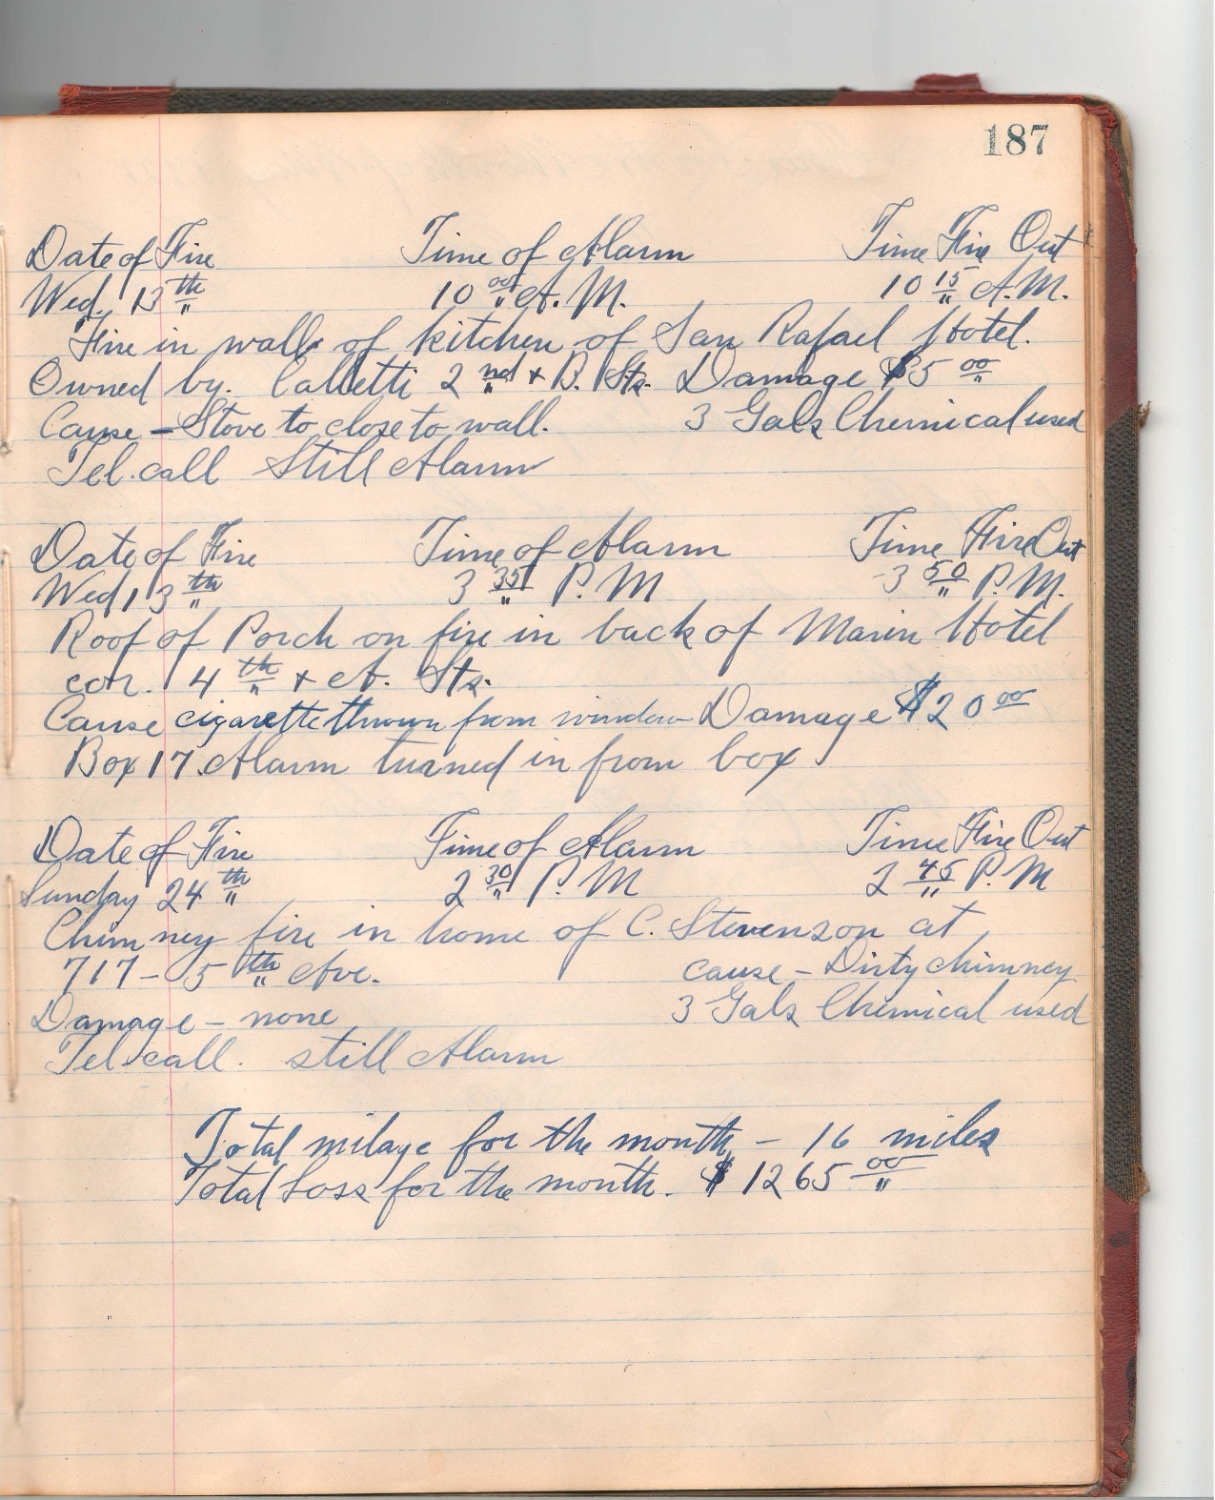 187
Date of Fire Time of Alarm Time Fire Out
Wed. 13th 10 00 A.M. 10 15 A.M.
Fire in wall of kitchen of San Rafael Hotel.
Owned by. 2nd + B. Sts. Damage $5 00
Cause - Stove to close to wall. 3 Gals Chemical used
Tel. call Still Alarm
Date of Fire Time of Alarm Time Fire Out
Wed 13th 3 35 P.M 3 50 P.M.
Roof of Porch on fire in back of Marin Hotel
cor. 4th + A. Sts.
Cause cigarette thrown from window Damage $20 00
Box 17. Alarm turned in from box
Date of Fire Time of Alarm Time Fire Out
Sunday 24th 2 30 P.M 2 45 P.M
Chimney fire in home of C. Stevenson at
717 - 5th Ave. cause - Dirty chimney
Damage - none 3 Gals Chemical used
Tel. call. still Alarm
Total milage for the month - 16 miles
Total Loss for the month. $1265 00